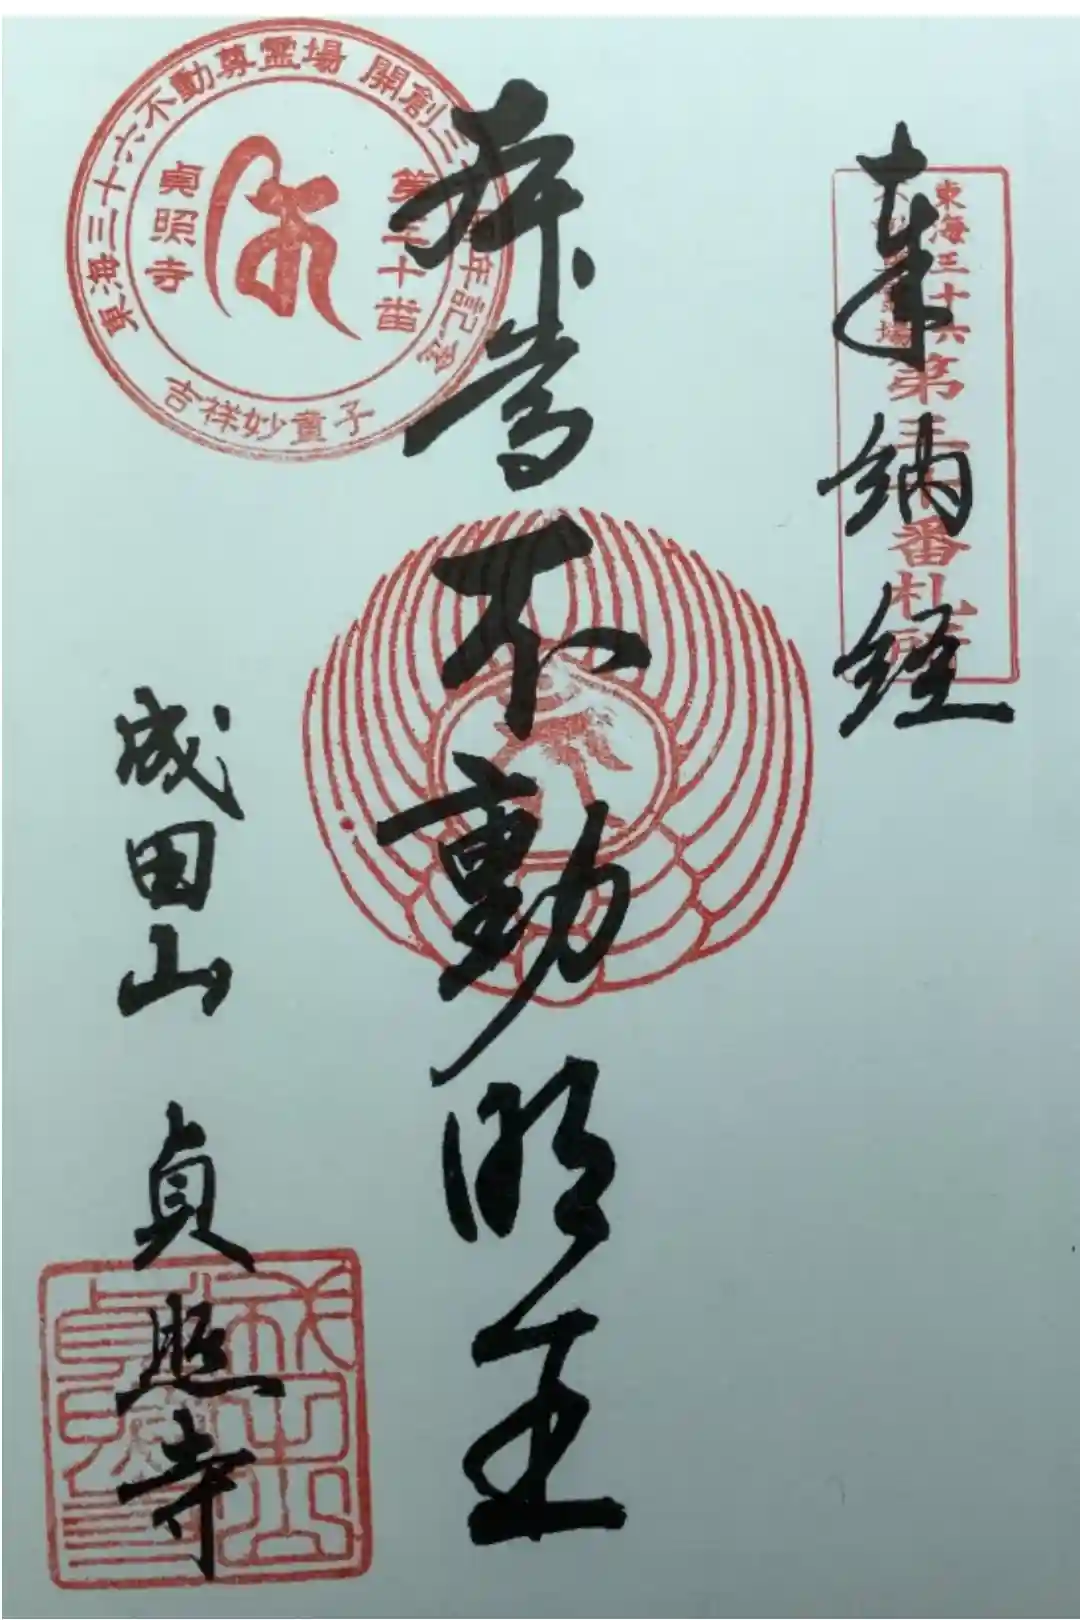 奉納経
東海三十六
不動尊霊場
第三十番札所
不動明王
東海三十六不動尊霊場 開創三十周年記念
第三十番
貞照寺
吉祥妙童子
成田山 貞照寺